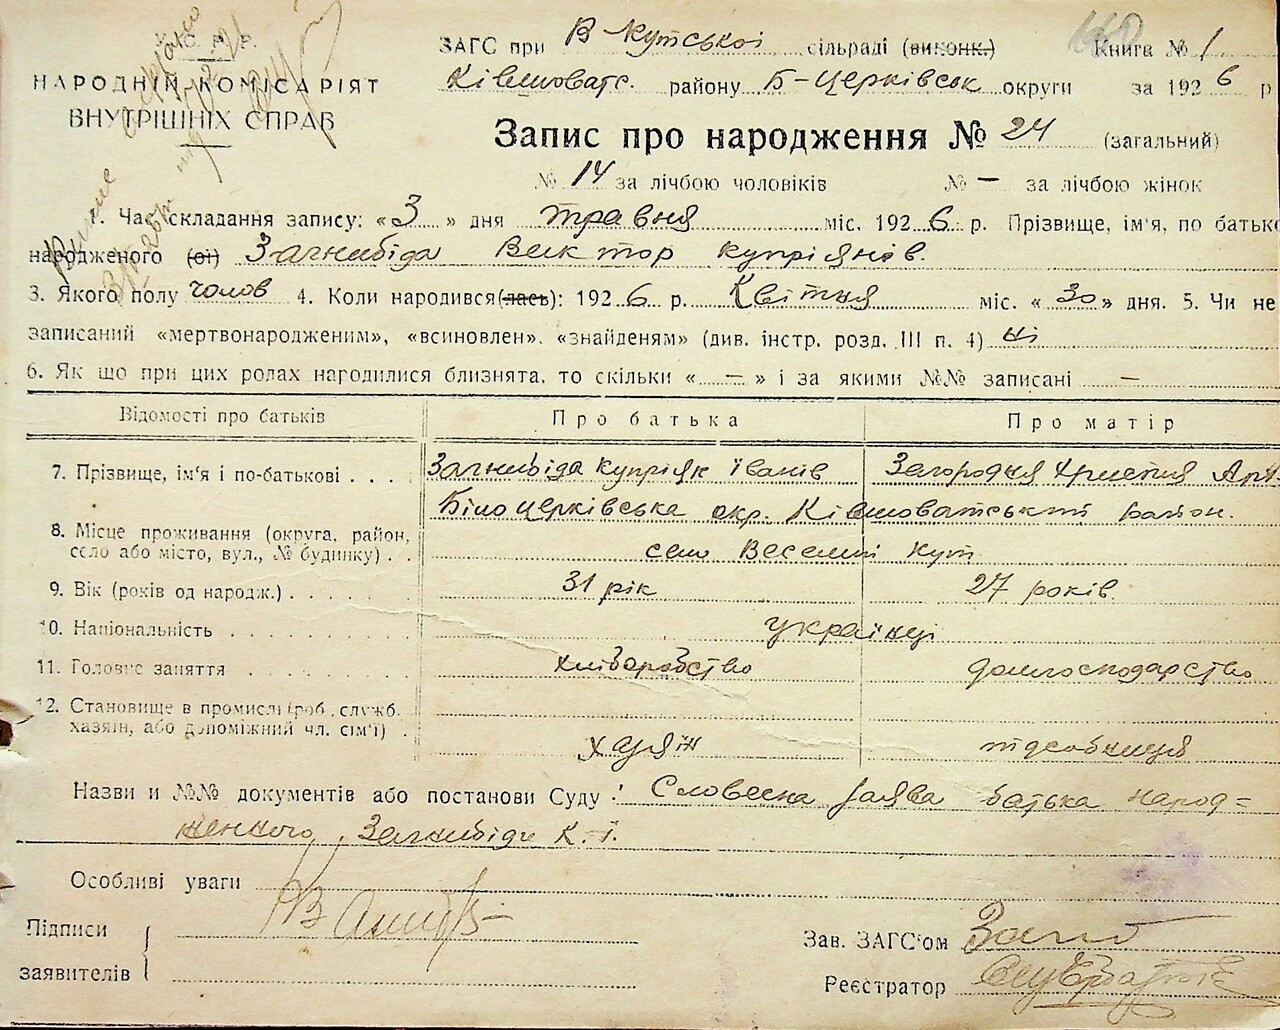 У.С.Р.Р.
НАРОДНІЙ КОМІСАРІЯТ
ВНУТРІШНІХ СПРАВ
ЗАГС при В-Кутської сільраді (виконк.) Книга № 1
Ківшоватс. району Б-Церківськ округи за 1926 р
Запис про народження № 24 (загальний)
№ 14 за лічбою чоловіків № — за лічбою жінок
1. Час складання запису: «3» дня травня міс. 1926 р. Прізвище, ім'я, по батьков
народженого (ої) Загнибіда Віктор Купріянів.
3. Якого полу чолов 4. Коли народився(лась): 1926 р. Квітня міс. «30» дня. 5. Чи не
записаний «мертвонародженим», «всиновлен», «знайденям» (див. інстр. розд. III п. 4) ні
6. Як що при цих ролах народилися близнята, то скільки «—» і за якими №№ записані —
Відомості про батьків Про батька Про матір
7. Прізвище, ім'я і по-батькові . . . . Загнибіда Купріян Іванів Загородня Христия Арт.
Білоцерківська окр. Ківшоватський район.
8. Місце проживання (округа, район,
село або місто, вул., № будинку) . . село Веселий Кут
9. Вік (років од народж.) . . . . . . 31 рік 27 років.
10. Національність . . . . . . . . . українці
11. Головне заняття . . . . . . . . хліборобство домгосподарство
12. Становище в промислі (роб., служб.
хазяїн, або допоміжний чл. сім'ї) . хазяїн підсобниця
Назви и №№ документів або постанови Суду: Словесна заява батька народ=
женого, Загнибіди К. І.
Особливі уваги
Підписи
заявителів
Зав. ЗАГС'ом
Реєстратор